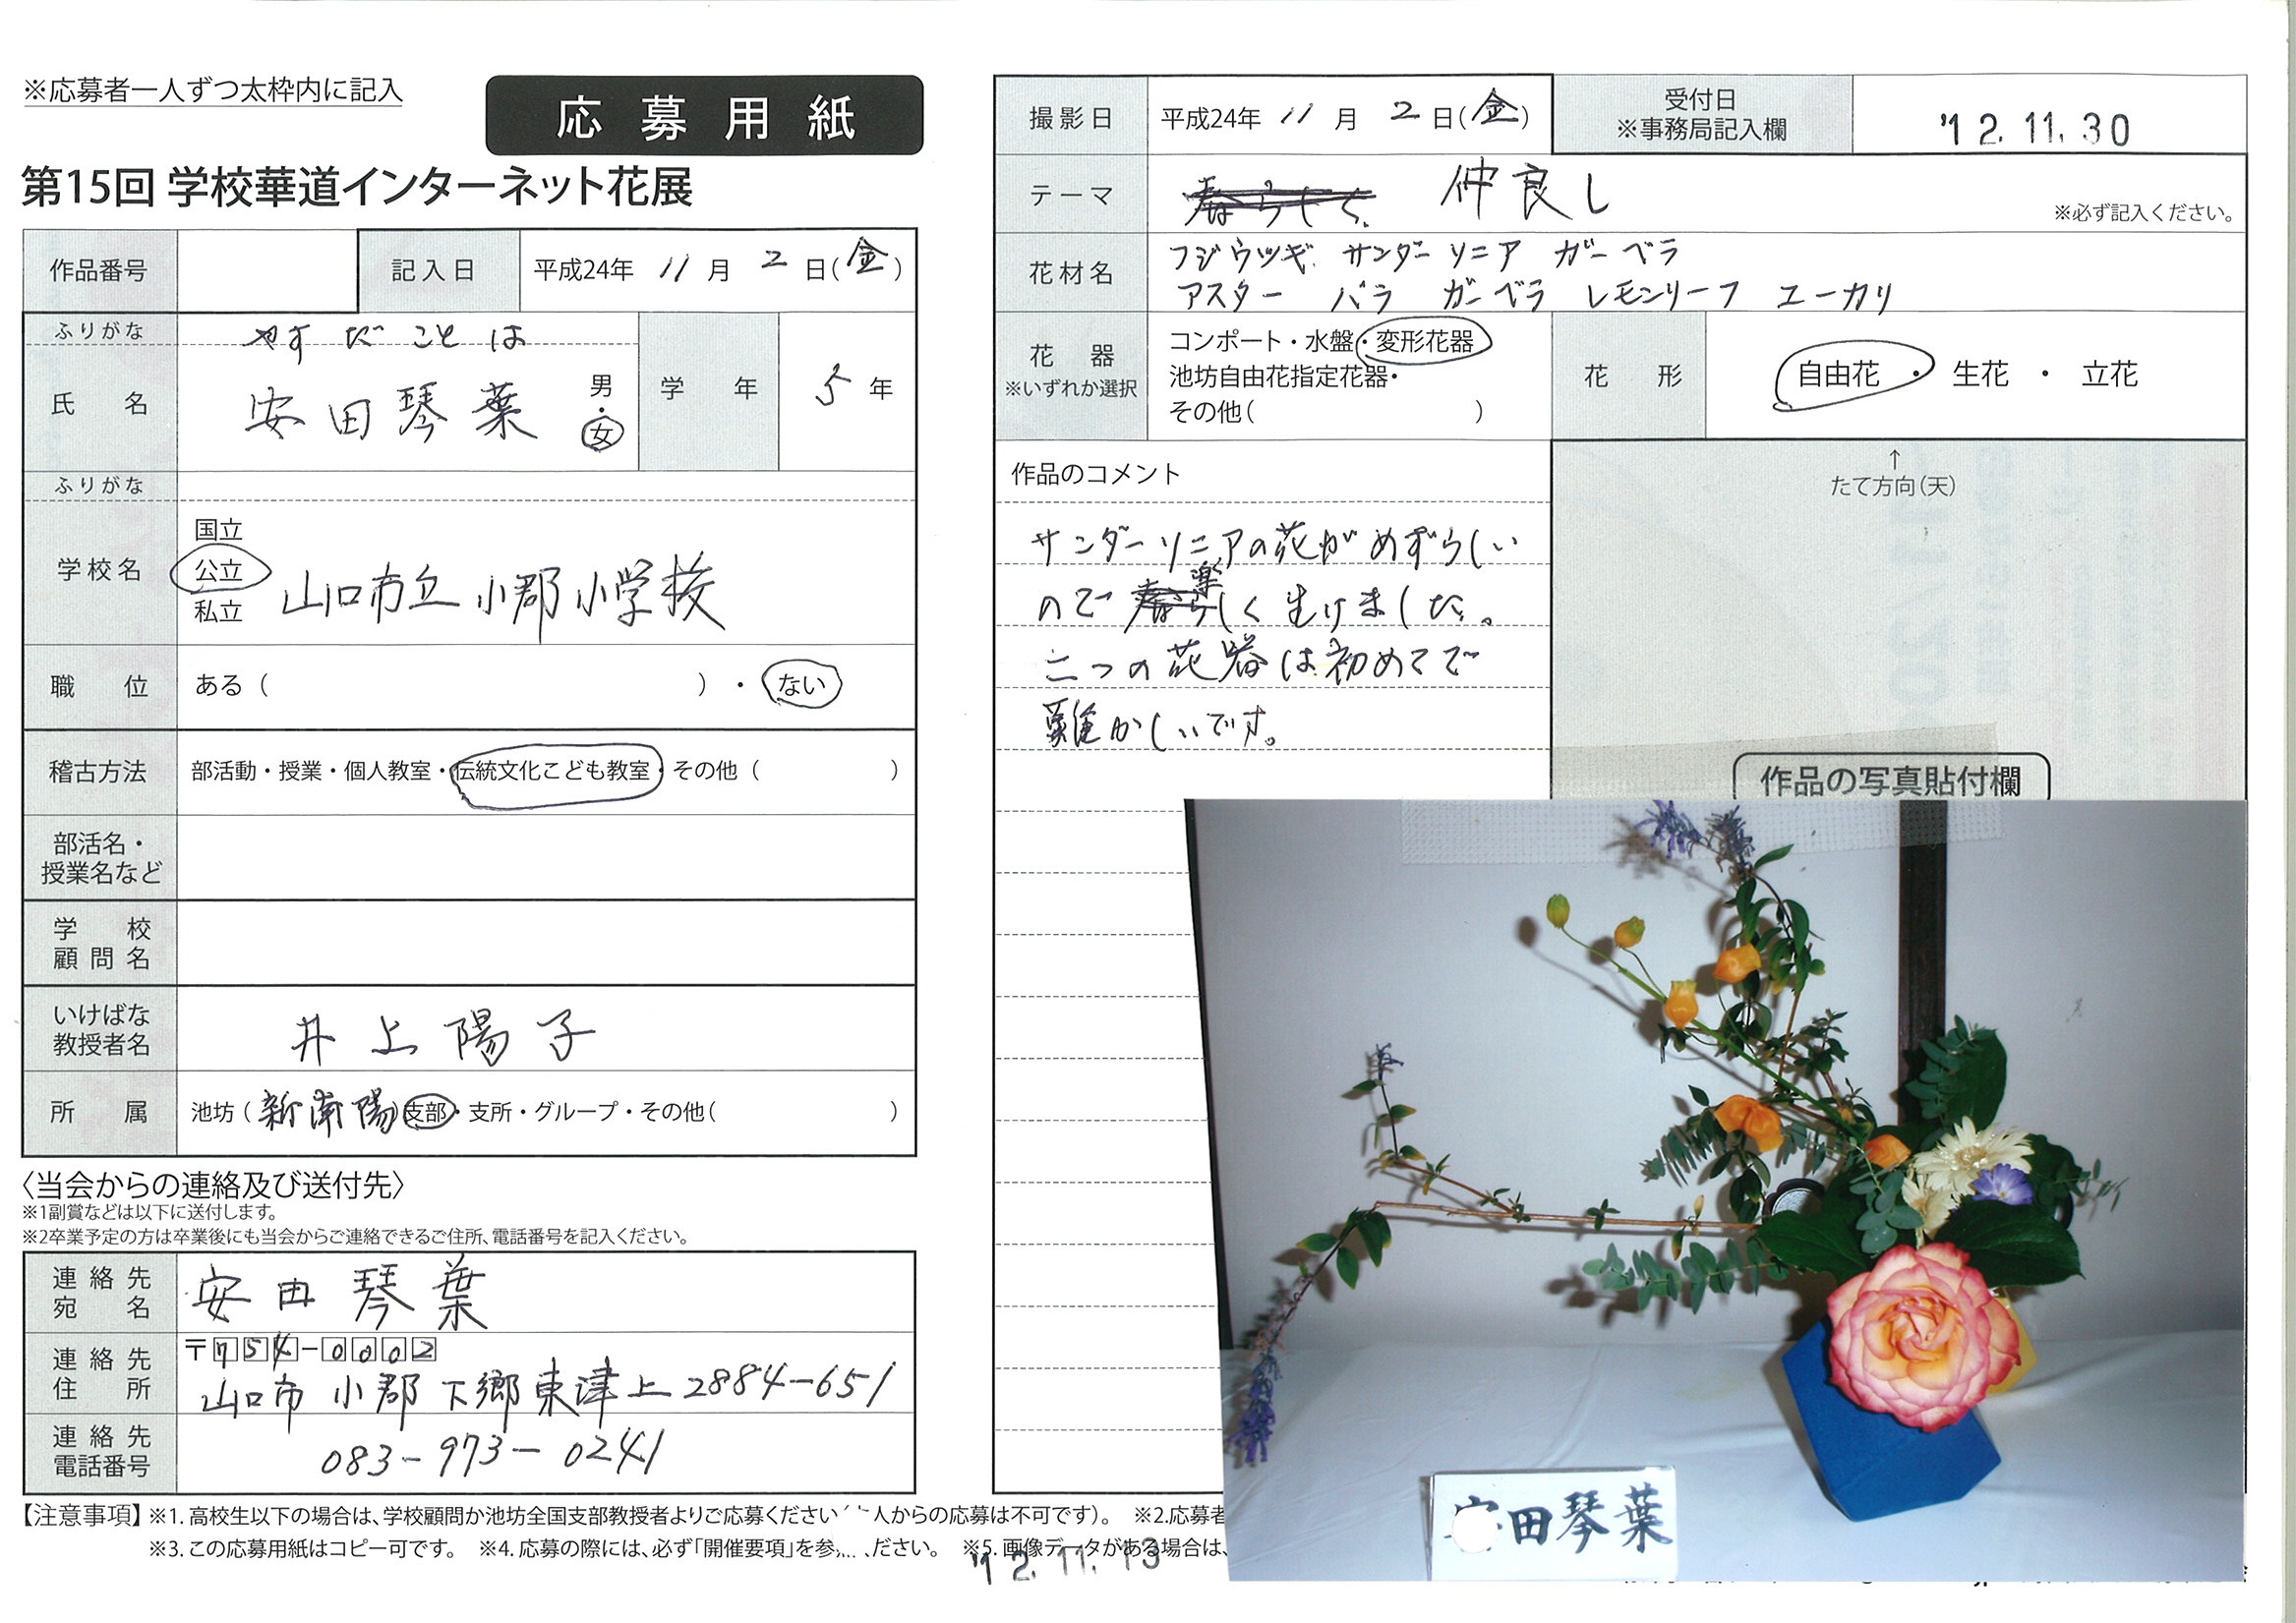 ※応募者一人ずつ太枠内に記入
応募用紙
第15回 学校華道インターネット花展
作品番号
記入日 平成24年 11月 2日(金)
ふりがな やすだ ことは
氏名 安田琴葉 男・女
学年 5年
ふりがな
学校名 国立 公立 私立 山口市立小郡小学校
職位 ある( )・ない
稽古方法 部活動・授業・個人教室・伝統文化こども教室・その他( )
部活名・授業名など
学校顧問名
いけばな教授者名 井上陽子
所属 池坊(新南陽)支部・支所・グループ・その他( )
〈当会からの連絡及び送付先〉
※1副賞などは以下に送付します。
※2卒業予定の方は卒業後にも当会からご連絡できるご住所、電話番号を記入ください。
連絡先宛名 安田琴葉
連絡先住所 〒754-0002
山口市小郡下郷東津上2884-651
連絡先電話番号 083-973-0241
撮影日 平成24年 11月 2日(金)
受付日 ※事務局記入欄 '12.11.30
テーマ 仲良し ※必ず記入ください。
花材名 フジウツギ サンダーソニア ガーベラ
アスター バラ ガーベラ レモンリーフ ユーカリ
花器 ※いずれか選択
コンポート・水盤・変形花器
池坊自由花指定花器・
その他( )
花形 自由花・生花・立花
作品のコメント
サンダーソニアの花がめずらしい
ので楽しく生けました。
二つの花器は初めてで
難かしいです。
↑
たて方向(天)
作品の写真貼付欄
安田琴葉
【注意事項】※1.高校生以下の場合は、学校顧問か池坊全国支部教授者よりご応募ください 人からの応募は不可です)。 ※2.応募者
※3.この応募用紙はコピー可です。 ※4.応募の際には、必ず「開催要項」を参 ください。 ※5.画像データがある場合は、
'12.11.13